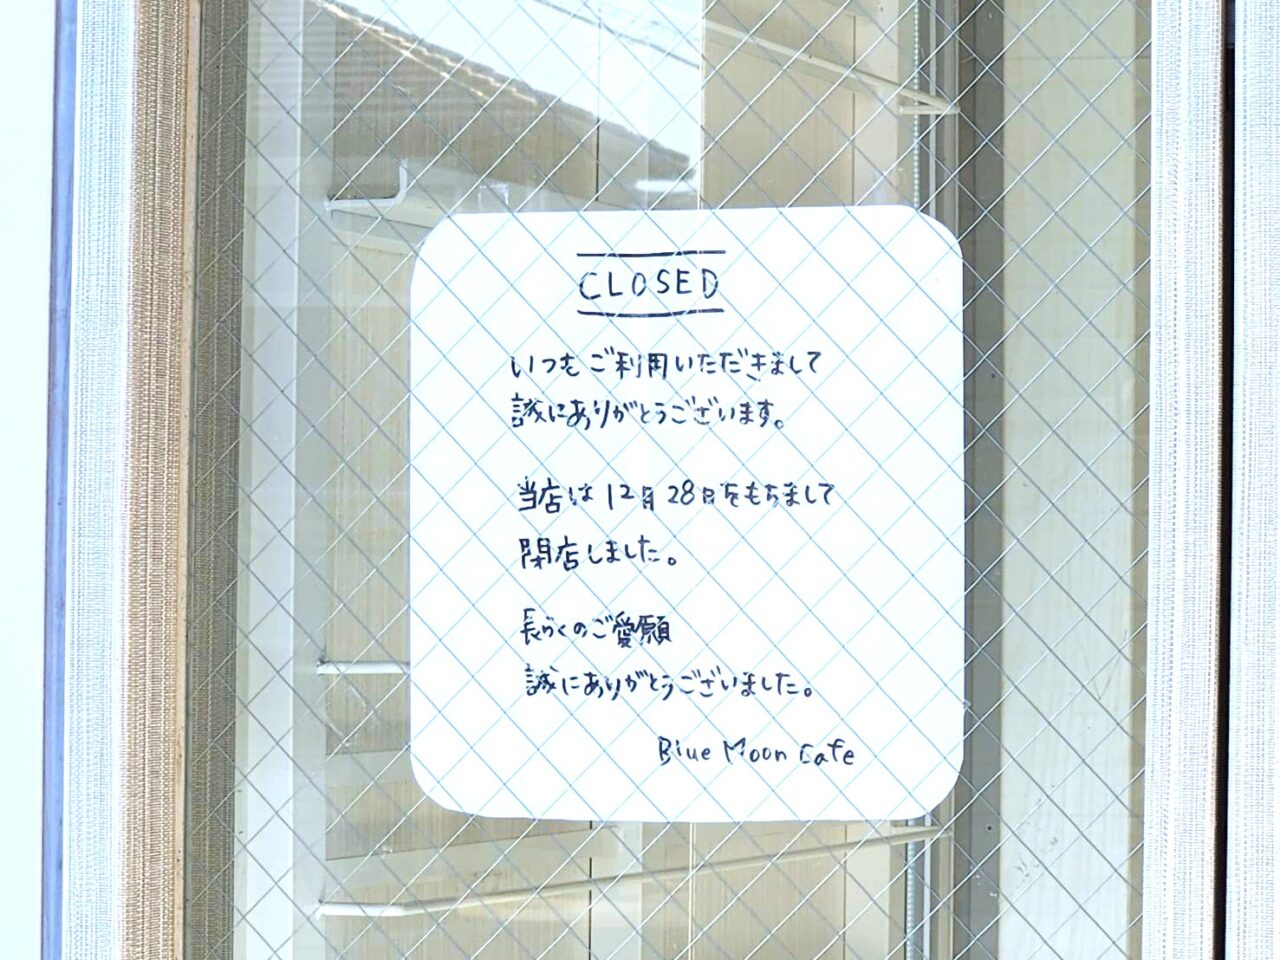 CLOSED
いつもご利用いただきまして
誠にありがとうございます。
当店は12月28日をもちまして
閉店しました。
長らくのご愛願
誠にありがとうございました。
Blue Moon Cafe